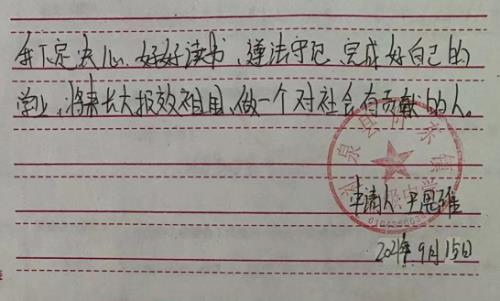 我下定决心、好好读书、遵法守纪、完成好自己的
学业、将来长大报效祖国、做一个对社会有贡献的人。
申请人 尹恩雅
2021年9月15日